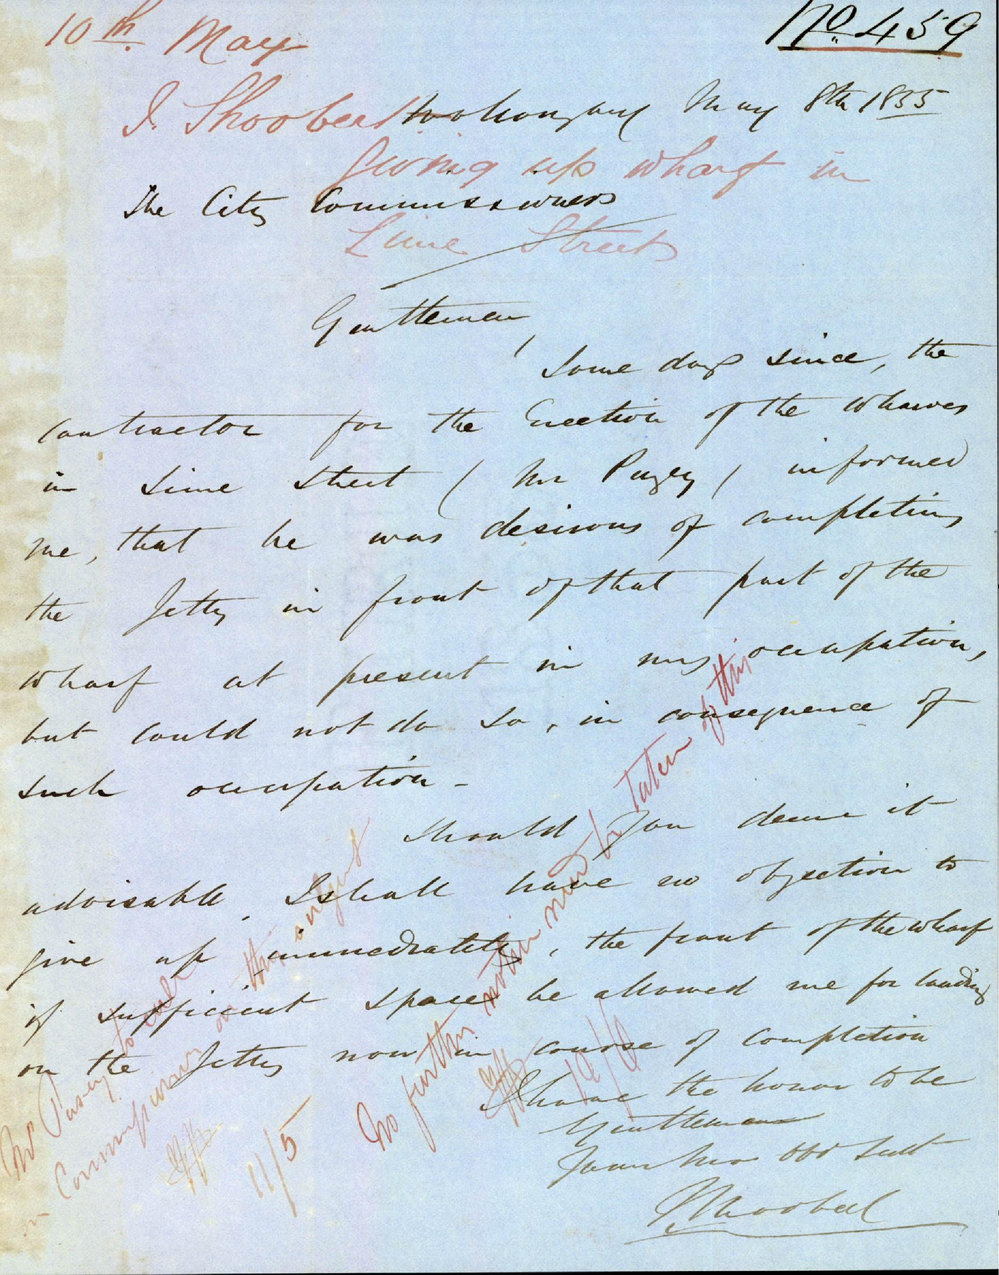 10th May
No. 459
J. Shoobert Wollongong May 8th 1855
Giving up wharf in
The City Commissioners
Lime Street
Gentlemen,
Some days since, the
contractor for the Erection of the Wharves
in Lime Street (Mr Puzey) informed
me, that he was desirous of completing
the Jetty in front of that part of the
wharf at present in my occupation,
but could not do so, in consequence of
such occupation -
Should you deem it
advisable, I shall have no objection to
give up immediately, the front of the wharf
if sufficient space be allowed me for landing
on the Jetty now in course of completion
I have the honor to be
Gentlemen
Your Mo Obt Sert
J Shoobert
Mr Puzey to call
on Commissioners on this subject
11/5
No further notice need be taken of this